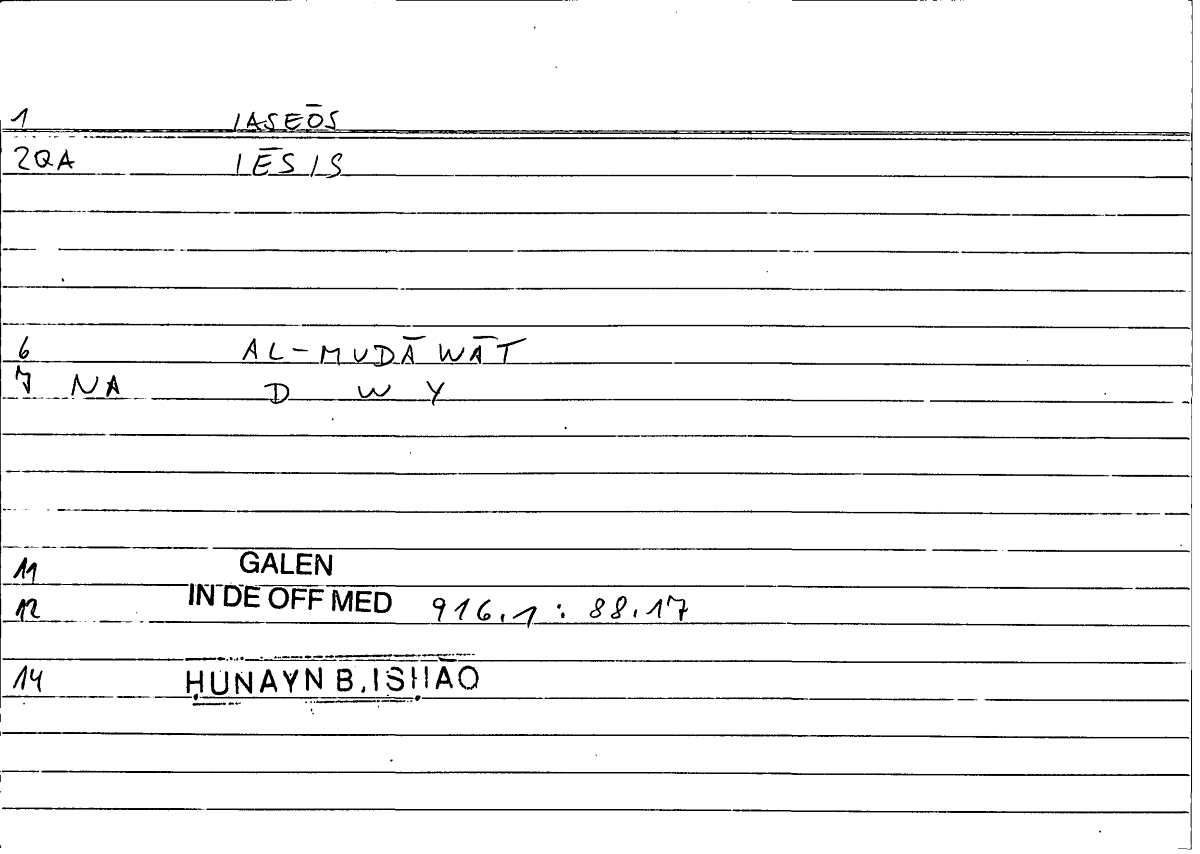 1 IASEŌS
2QA IĒSIS
6 AL-MUDĀWĀT
7 NA D W Y
11 GALEN
12 IN DE OFF MED 916.1 : 88.17
14 ḤUNAYN B. ISḤĀQ